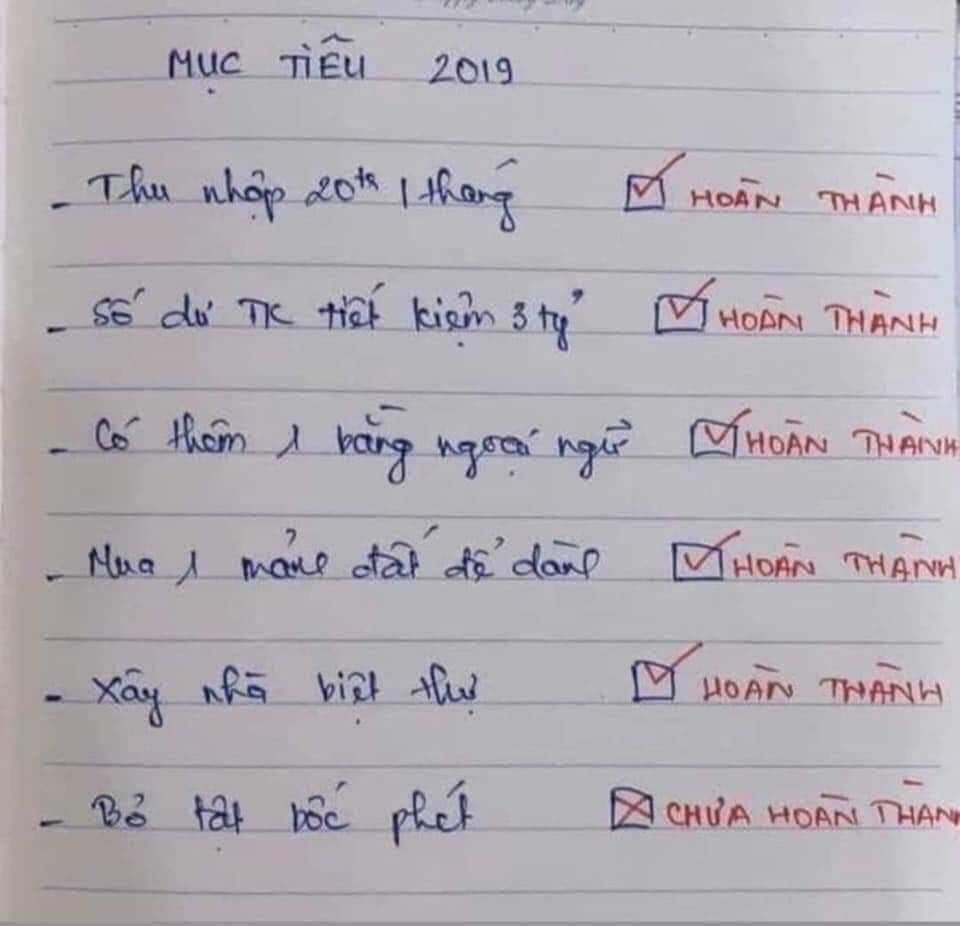 MỤC TIÊU 2019
- Thu nhập 20tr 1 tháng ☑ HOÀN THÀNH
- Số dư TK tiết kiệm 3 tỷ ☑ HOÀN THÀNH
- Có thêm 1 bằng ngoại ngữ ☑ HOÀN THÀNH
- Mua 1 mảng đất để dành ☑ HOÀN THÀNH
- Xây nhà biệt thự ☑ HOÀN THÀNH
- Bỏ tật bốc phét ☒ CHƯA HOÀN THÀN